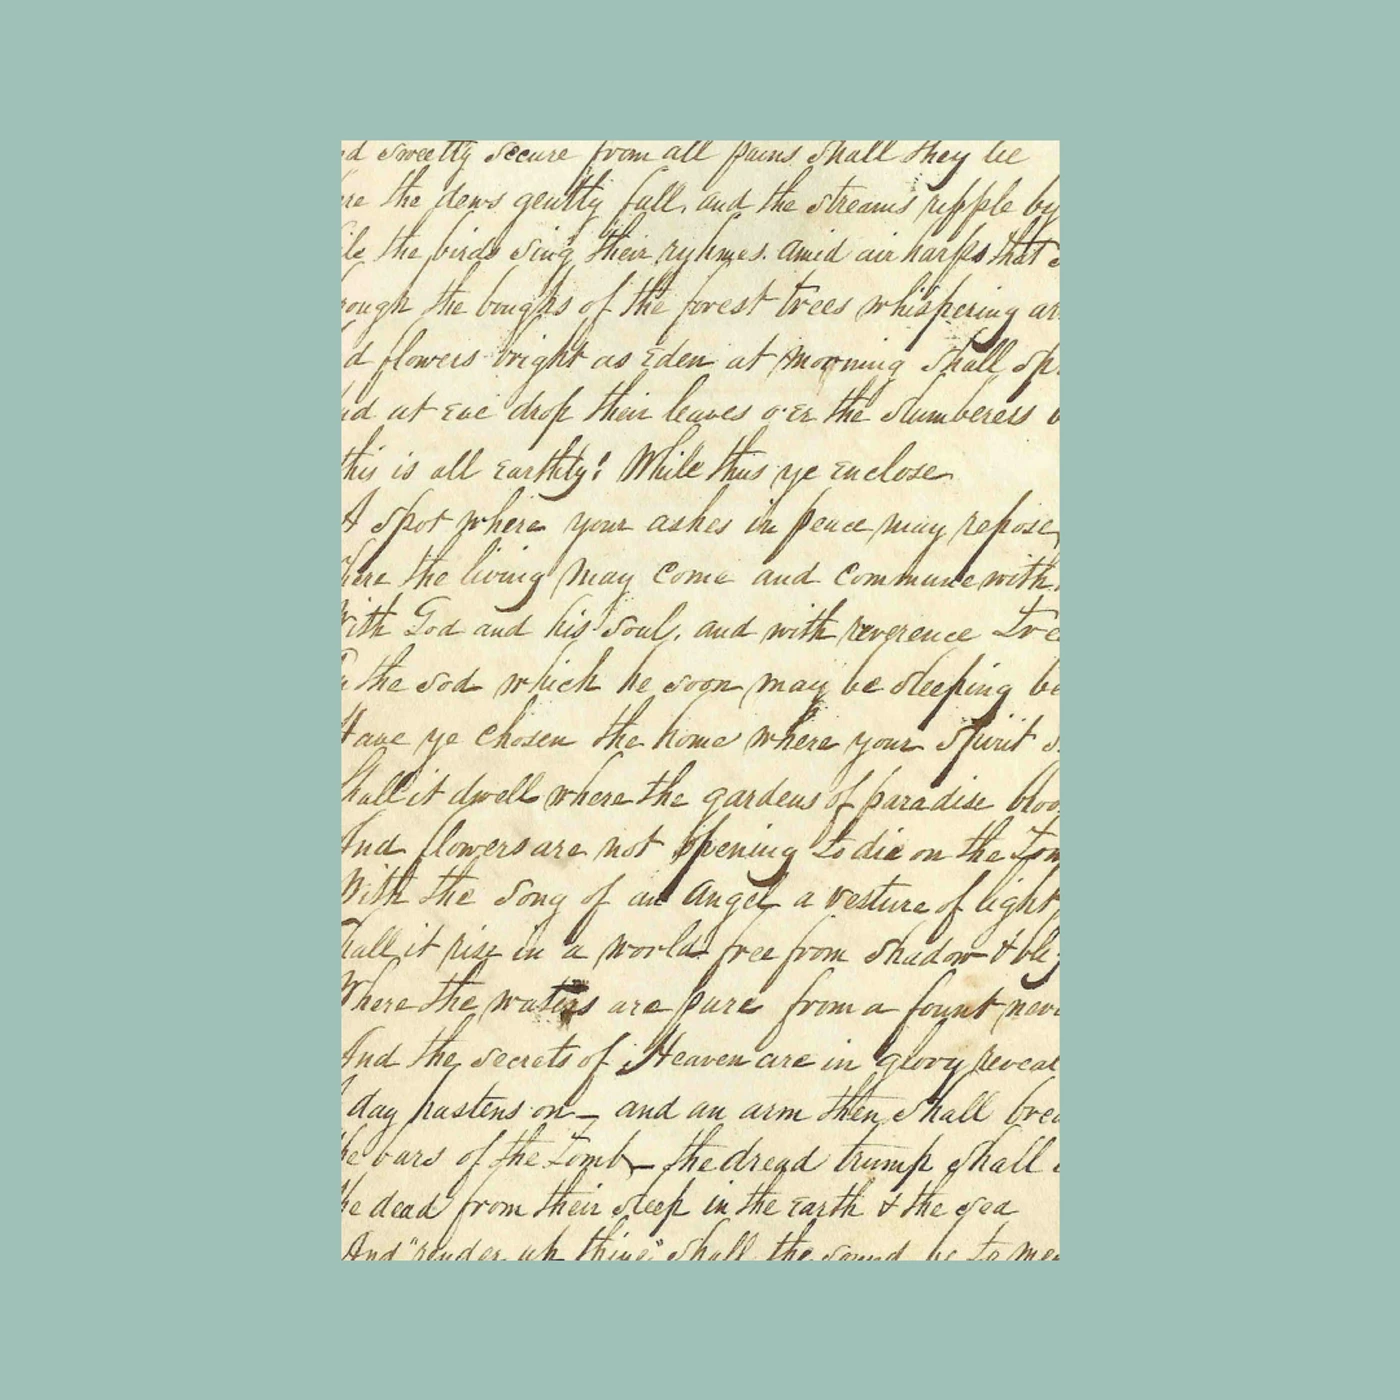 nd sweetly secure from all pains shall they be
re the dews gently fall, and the streams ripple by
ile the birds sing their ryhmes. amid air harps that s
rough the boughs of the forest trees whispering ar
d flowers bright as Eden at morning shall sp
nd at Eve drop their leaves o'er the slumberers
this is all Earthly! While thus ye Enclose
A spot where your ashes in peace may repose
here the living may come and commune with
With God and his soul, and with reverence tre
the sod which he soon may be sleeping be
Have ye chosen the home where your spirit s
hall it dwell where the gardens of paradise bloo
And flowers are not opening to die on the Tom
With the song of an Angel a vesture of light
hall it rise in a world free from shadow & bli
Where the waters are pure from a fount nev
And the secrets of Heaven are in glory reveal
day hastens on – and an arm then shall brea
he bars of the Tomb – the dread trump shall
he dead from their sleep in the Earth & the sea
And "render up thine" shall the sound be to me